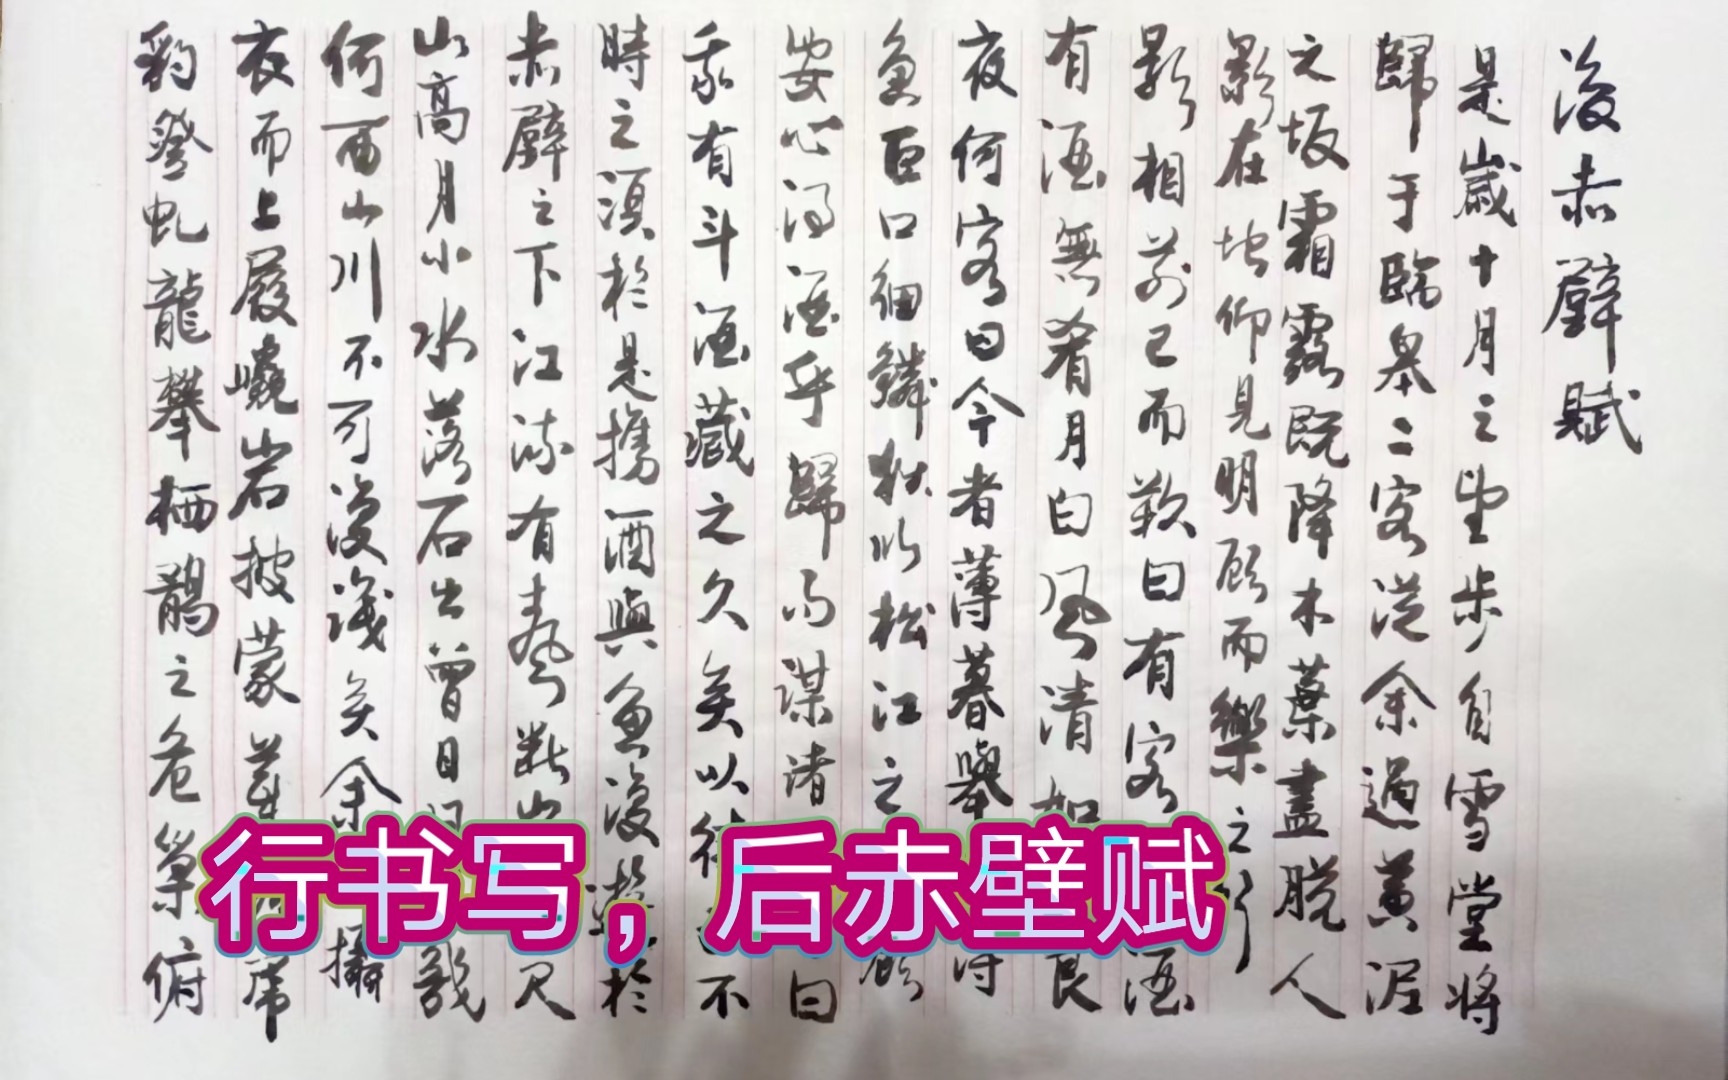 後赤壁賦
是歲十月之望步自雪堂將
歸于臨皋二客從余過黃泥
之坂霜露既降木葉盡脫人
影在地仰見明顧而樂之行
歌相答已而歎曰有客酒
有酒無肴月白風清如良
夜何客曰今者薄暮舉得
魚巨口細鱗狀似松江之顧
安所得酒乎歸而謀諸曰
我有斗酒藏之久矣以待不
時之須於是攜酒與魚復遊於
赤壁之下江流有聲斷岸尺
山高月小水落石出曾日月幾
何而山川不可復識矣余攝
衣而上履巉岩披蒙茸虎
豹登虬龍攀栖鶻之危巢俯
行书写，后赤壁赋